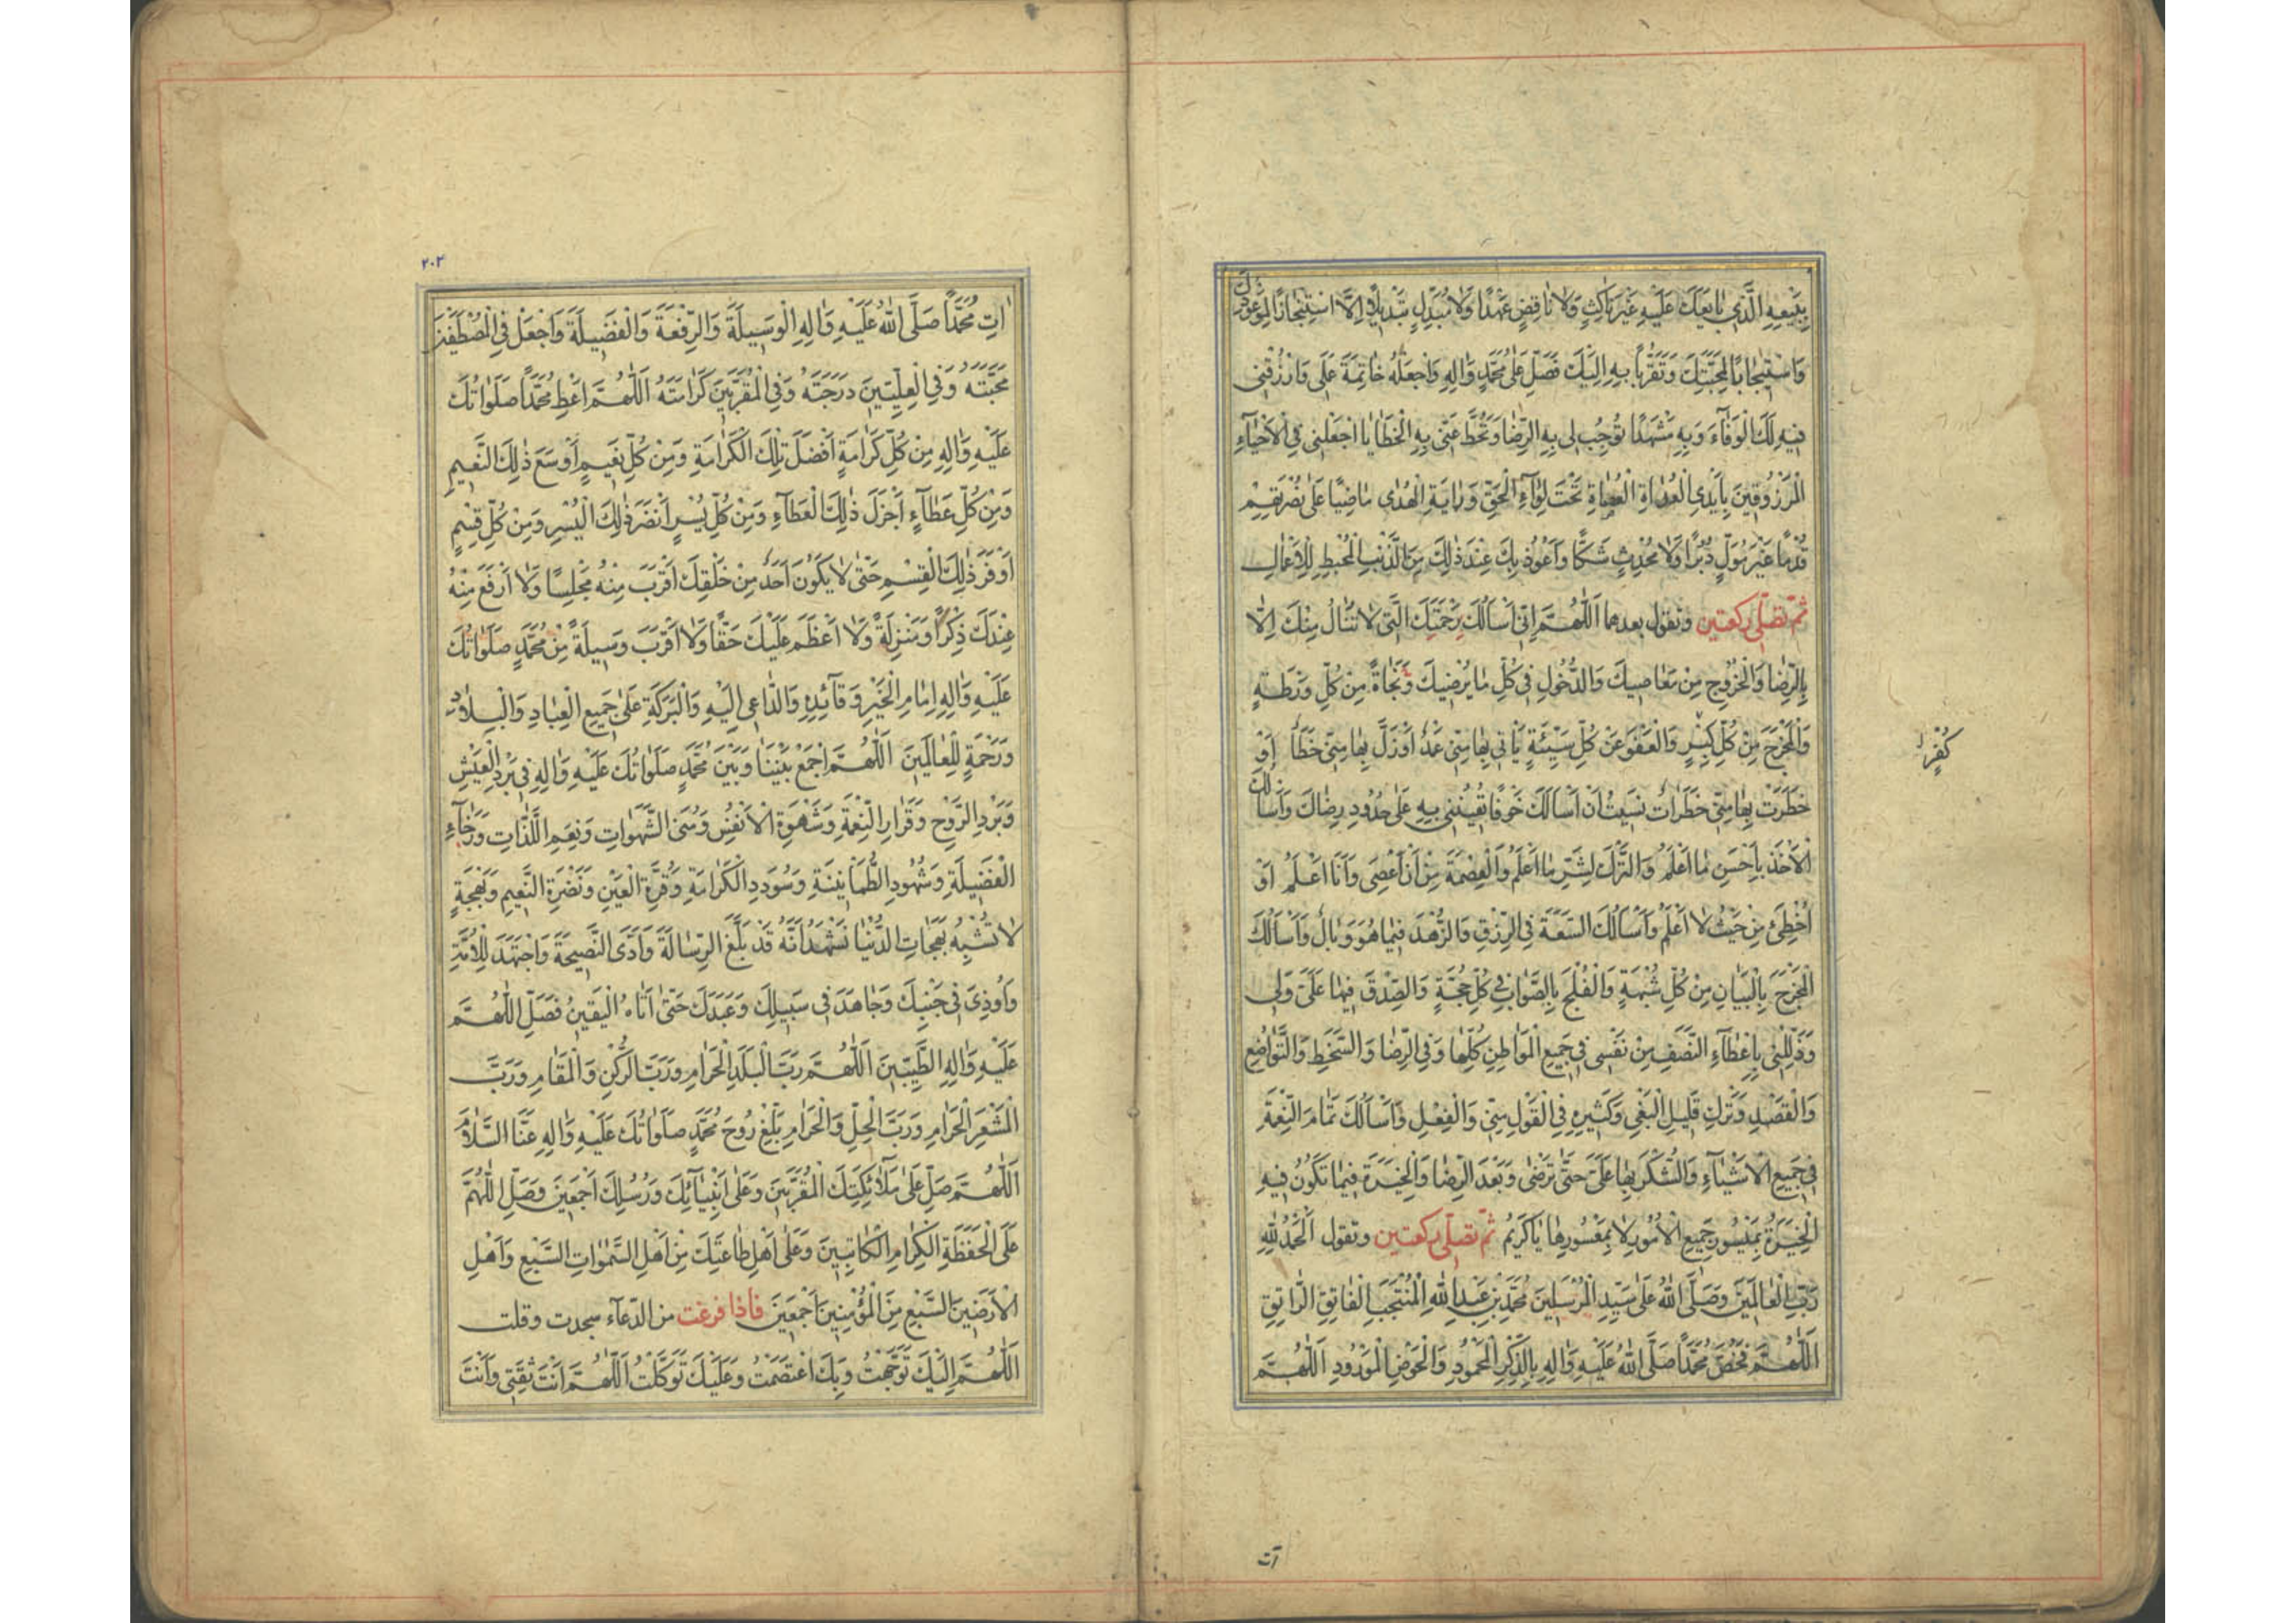 بِبَيْعِهِ الَّذِي بَايَعَكَ عَلَيْهِ غَيْرَ نَاكِثٍ وَلَا نَاقِضٍ عَهْدًا وَلَا مُبَدِّلٍ تَبْدِيلًا إِلَّا اسْتِنْجَازًا لِمَوْعُودِكَ
وَاسْتِيجَابًا لِمَحَبَّتِكَ وَتَقَرُّبًا بِهِ إِلَيْكَ فَصَلِّ عَلَى مُحَمَّدٍ وَآلِهِ وَاجْعَلْهُ خَاتِمَةَ عَمَلِي وَارْزُقْنِي
فِيهِ لَكَ الْوَفَاءَ وَبِهِ مَشْهَدًا تُوجِبُ لِي بِهِ الرِّضَا وَتَحُطُّ عَنِّي بِهِ الْخَطَايَا اجْعَلْنِي فِي الْأَحْيَاءِ
الْمَرْزُوقِينَ بِأَيْدِي الْعُدَاةِ الْعُصَاةِ تَحْتَ لِوَاءِ الْحَقِّ وَرَايَةِ الْهُدَى مَاضِيًا عَلَى نُصْرَتِهِمْ
قُدُمًا غَيْرَ مُوَلٍّ دُبُرًا وَلَا مُحْدِثٍ شَكًّا وَأَعُوذُ بِكَ عِنْدَ ذَلِكَ مِنَ الذَّنْبِ الْمُحْبِطِ لِلْأَعْمَالِ
ثم تصلى ركعتين وتقول بعدهما اَللّٰهُمَّ إِنِّي أَسْأَلُكَ بِرَحْمَتِكَ الَّتِي لَا تُنَالُ مِنْكَ إِلَّا
بِالرِّضَا وَالْخُرُوجِ مِنْ مَعَاصِيكَ وَالدُّخُولِ فِي كُلِّ مَا يُرْضِيكَ وَنَجَاةً مِنْ كُلِّ وَرْطَةٍ
وَالْمَخْرَجَ مِنْ كُلِّ كِبْرٍ وَالْعَفْوَ عَنْ كُلِّ سَيِّئَةٍ يَأْتِي بِهَا مِنِّي عَمْدٌ أَوْ زَلَّ بِهَا مِنِّي خَطَأٌ أَوْ
كُفْرٍ
خَطَرَتْ بِهَا مِنِّي خَطَرَاتٌ نَسِيتُ أَنْ أَسْأَلَكَ خَوْفًا تُعِينُنِي بِهِ عَلَى حُدُودِ رِضَاكَ وَأَسْأَلُكَ
الْأَخْذَ بِأَحْسَنِ مَا أَعْلَمُ وَالتَّرْكَ لِشَرِّ مَا أَعْلَمُ وَالْعِصْمَةَ مِنْ أَنْ أَعْصِيَ وَأَنَا أَعْلَمُ أَوْ
أُخْطِئَ مِنْ حَيْثُ لَا أَعْلَمُ وَأَسْأَلُكَ السَّعَةَ فِي الرِّزْقِ وَالزُّهْدَ فِيمَا هُوَ وَبَالٌ وَأَسْأَلُكَ
الْمَخْرَجَ بِالْبَيَانِ مِنْ كُلِّ شُبْهَةٍ وَالْفُلْجَ بِالصَّوَابِ فِي كُلِّ حُجَّةٍ وَالصِّدْقَ فِيمَا عَلَيَّ وَلِي
وَذَلِّلْنِي بِإِعْطَاءِ النَّصَفِ مِنْ نَفْسِي فِي جَمِيعِ الْمَوَاطِنِ كُلِّهَا وَفِي الرِّضَا وَالسَّخَطِ وَالتَّوَاضُعِ
وَالْفَضْلِ وَتَرْكِ قَلِيلِ الْبَغْيِ وَكَثِيرِهِ فِي الْقَوْلِ مِنِّي وَالْفِعْلِ وَأَسْأَلُكَ تَمَامَ النِّعْمَةِ
فِي جَمِيعِ الْأَشْيَاءِ وَالشُّكْرَ بِهَا عَلَيَّ حَتَّى تَرْضَى وَبَعْدَ الرِّضَا وَالْخِيَرَةَ فِيمَا تَكُونُ فِيهِ
الْخِيَرَةُ بِمَيْسُورِ جَمِيعِ الْأُمُورِ لَا بِمَعْسُورِهَا يَا كَرِيمُ ثم تصلى ركعتين وتقول اَلْحَمْدُ لِلّٰهِ
رَبِّ الْعَالَمِينَ وَصَلَّى اللّٰهُ عَلَى سَيِّدِ الْمُرْسَلِينَ مُحَمَّدِ بْنِ عَبْدِ اللّٰهِ الْمُنْتَجَبِ الْفَاتِقِ الرَّاتِقِ
اَللّٰهُمَّ فَخُصَّ مُحَمَّدًا صَلَّى اللّٰهُ عَلَيْهِ وَآلِهِ بِالذِّكْرِ الْمَحْمُودِ وَالْحَوْضِ الْمَوْرُودِ اَللّٰهُمَّ
آت
٢٠٢
آتِ مُحَمَّدًا صَلَّى اللّٰهُ عَلَيْهِ وَآلِهِ الْوَسِيلَةَ وَالرِّفْعَةَ وَالْفَضِيلَةَ وَاجْعَلْ فِي الْمُصْطَفَيْنَ
مَحَبَّتَهُ وَفِي الْعِلِّيِّينَ دَرَجَتَهُ وَفِي الْمُقَرَّبِينَ كَرَامَتَهُ اَللّٰهُمَّ أَعْطِ مُحَمَّدًا صَلَوَاتُكَ
عَلَيْهِ وَآلِهِ مِنْ كُلِّ كَرَامَةٍ أَفْضَلَ تِلْكَ الْكَرَامَةِ وَمِنْ كُلِّ نَعِيمٍ أَوْسَعَ ذَلِكَ النَّعِيمِ
وَمِنْ كُلِّ عَطَاءٍ أَجْزَلَ ذَلِكَ الْعَطَاءِ وَمِنْ كُلِّ يُسْرٍ أَنْضَرَ ذَلِكَ الْيُسْرِ وَمِنْ كُلِّ قِسْمٍ
أَوْفَرَ ذَلِكَ الْقِسْمِ حَتَّى لَا يَكُونَ أَحَدٌ مِنْ خَلْقِكَ أَقْرَبَ مِنْهُ مَجْلِسًا وَلَا أَرْفَعَ مِنْهُ
عِنْدَكَ ذِكْرًا وَمَنْزِلَةً وَلَا أَعْظَمَ عَلَيْكَ حَقًّا وَلَا أَقْرَبَ وَسِيلَةً مِنْ مُحَمَّدٍ صَلَوَاتُكَ
عَلَيْهِ وَآلِهِ إِمَامِ الْخَيْرِ وَقَائِدِهِ وَالدَّاعِي إِلَيْهِ وَالْبَرَكَةِ عَلَى جَمِيعِ الْعِبَادِ وَالْبِلَادِ
وَرَحْمَةٍ لِلْعَالَمِينَ اَللّٰهُمَّ اجْمَعْ بَيْنَنَا وَبَيْنَ مُحَمَّدٍ صَلَوَاتُكَ عَلَيْهِ وَآلِهِ فِي بَرْدِ الْعَيْشِ
وَبَرْدِ الرَّوْحِ وَقَرَارِ النِّعْمَةِ وَشَهْوَةِ الْأَنْفُسِ وَمُنَى الشَّهَوَاتِ وَنِعَمِ اللَّذَّاتِ وَرَخَاءِ
الْفَضِيلَةِ وَشُهُودِ الطُّمَأْنِينَةِ وَسُودَدِ الْكَرَامَةِ وَقُرَّةِ الْعَيْنِ وَنَضْرَةِ النَّعِيمِ وَبَهْجَةٍ
لَا تُشْبِهُ بَهَجَاتِ الدُّنْيَا نَشْهَدُ أَنَّهُ قَدْ بَلَّغَ الرِّسَالَةَ وَأَدَّى النَّصِيحَةَ وَاجْتَهَدَ لِلْأُمَّةِ
وَأُوذِيَ فِي جَنْبِكَ وَجَاهَدَ فِي سَبِيلِكَ وَعَبَدَكَ حَتَّى أَتَاهُ الْيَقِينُ فَصَلِّ اللّٰهُمَّ
عَلَيْهِ وَآلِهِ الطَّيِّبِينَ اَللّٰهُمَّ رَبَّ الْبَلَدِ الْحَرَامِ وَرَبَّ الرُّكْنِ وَالْمَقَامِ وَرَبَّ
الْمَشْعَرِ الْحَرَامِ وَرَبَّ الْحِلِّ وَالْحَرَامِ بَلِّغْ رُوحَ مُحَمَّدٍ صَلَوَاتُكَ عَلَيْهِ وَآلِهِ عَنَّا السَّلَامَ
اَللّٰهُمَّ صَلِّ عَلَى مَلَائِكَتِكَ الْمُقَرَّبِينَ وَعَلَى أَنْبِيَائِكَ وَرُسُلِكَ أَجْمَعِينَ وَصَلِّ اللّٰهُمَّ
عَلَى الْحَفَظَةِ الْكِرَامِ الْكَاتِبِينَ وَعَلَى أَهْلِ طَاعَتِكَ مِنْ أَهْلِ السَّمٰوَاتِ السَّبْعِ وَأَهْلِ
الْأَرَضِينَ السَّبْعِ مِنَ الْمُؤْمِنِينَ أَجْمَعِينَ فاذا فرغت من الدعآء سجدت وقلت
اَللّٰهُمَّ إِلَيْكَ تَوَجَّهْتُ وَبِكَ اعْتَصَمْتُ وَعَلَيْكَ تَوَكَّلْتُ اَللّٰهُمَّ أَنْتَ ثِقَتِي وَأَنْتَ